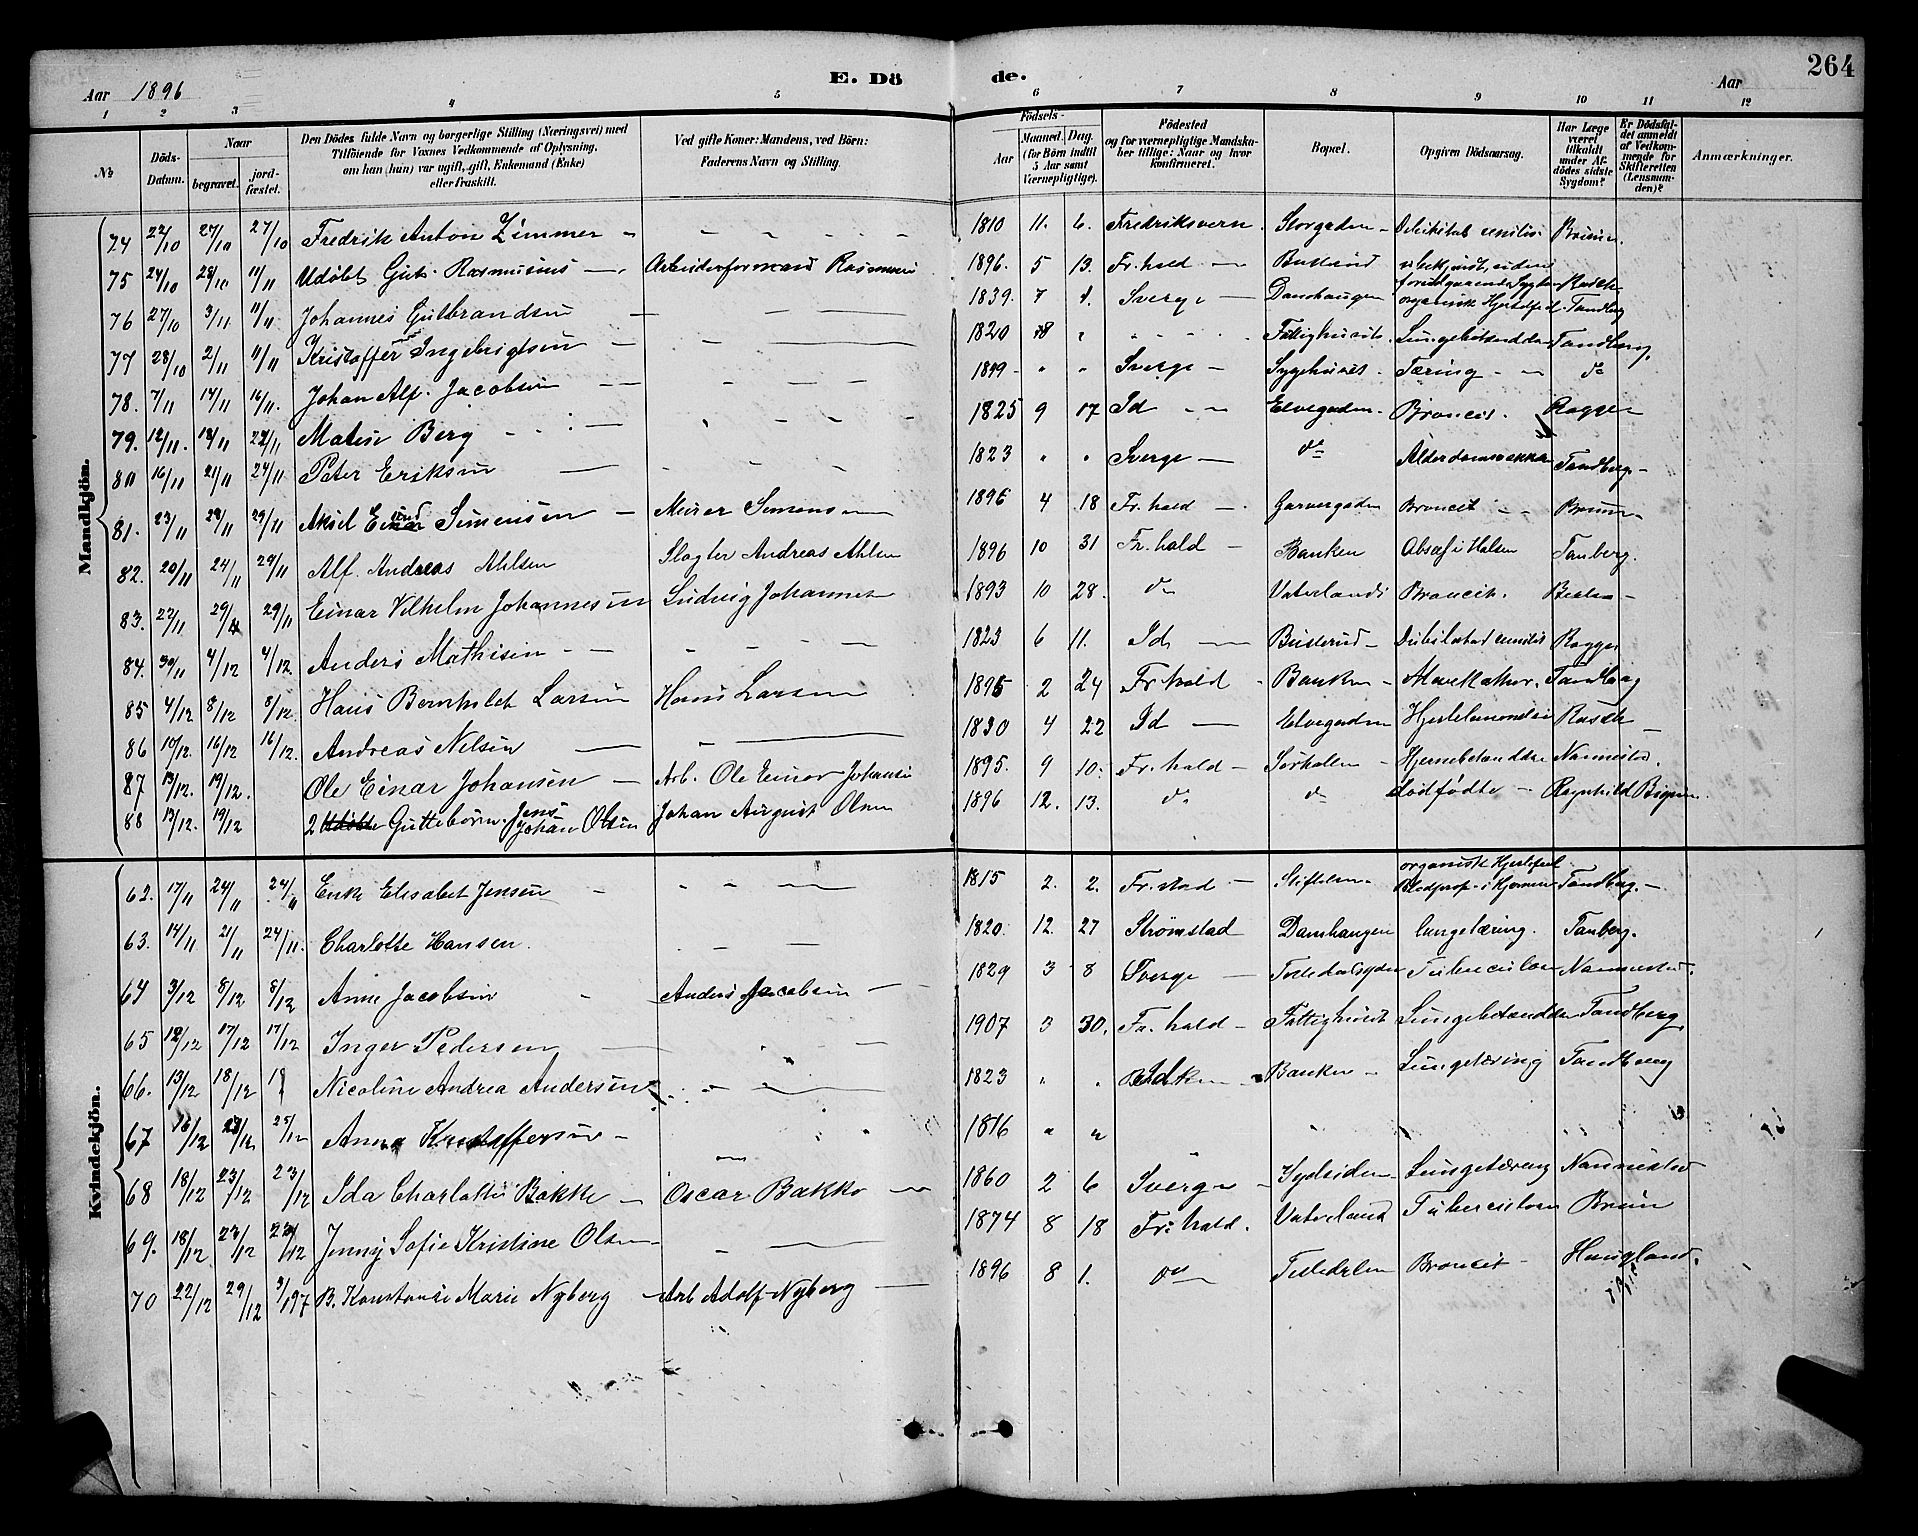 264
E. Döde.
Aar 1896
Aar
1 2 3 4 5 6 7 8 9 10 11 12
№
Döds-Datum.
Naar
begravet.
jord-fæstet.
Den Dödes fulde Navn og borgerlige Stilling (Næringsvei) med
Tilföiende for Voxnes Vedkommende af Oplysning,
om han (hun) var ugift, gift, Enkemand (Enke)
eller fraskilt.
Ved gifte Koner: Mandens, ved Börn:
Faderens Navn og Stilling.
Födsels-
Aar
Maaned. Dag.
(for Börn indtil
5 Aar samt
Værnepligtige).
Födested
og for værnepligtige Mandska-
ber tillige: Naar og hvor
konfirmeret.
Bopæl.
Opgiven Dödsaarsag.
Har Læge
været
tilkaldt
under Af-
dödes sidste
Sygdom?
Er Dödsfal-
det anmeldt
af Vedkom-
mende for
Skifteretten
(Lensman-
den)?
Anmærkninger.
Mandkjön.
74 22/10 27/10 27/10 Fredrik Anton Zimmer - 1810 11. 6. Fredriksvern Storgaden - senilis Bruun.
75 24/10 28/10 11/11 Udøbt Gut. Rasmusens Arbeiderformand Rasmusen 1896. 5 13. Fr.hald Busterud
76 27/10 3/11 11/11 Johannes Gulbrandsen 1839. 7 Sverge Damhaugen organisk Hjertefeil Tandberg
77 28/10 2/11 11/11 Kristoffer Ingebrigtsen 1820 8 Fattighuset. Lungebetændelse Tandberg.
78. 7/11 14/11 16/11. Johan Alf. Jacobsen 1899 " " Sverge - Sygehuset. Tæring do
79. 12/11. 18/11 22/11 Matius Berg 1825 9 17 Id Elvegaden. Broncit. Rogge
80 16/11 21/11 24/11 Peter Eriksen 1823 " " Sverge do Alderdomssvækkelse Tandberg -
81. 23/11 29/11 29/11 Aksel Simensen Murer Simensen 1896 4 18 Fr.hald Garvergaden Broncit Bruun
82. 20/11 24/11 29/11 Alf. Andreas Ahlsen Slagter Andreas Ahlsen 1896 10 31 Fr.hald Banken Absces i Halsen Tanberg.
83. 22/11 29/11 29/11 Einar Vilhelm Johannesen Ludvig Johannesen 1893 10 28. do Vaterlands Broncit.
84. 30/11 4/12 4/12. Anders Mathisen 1823 6 11. Id Busterud - senilis Rogge
85 4/12 8/12 8/12. Hans Bernhilet Larsen Hans Larsen 1896 2 24 Fr.hald Banken Tandberg
86 10/12. 16/12 16/12. Andreas Nilsen 1830 4 22 Id Elvegaden
87 13/12. 19/12. Ole Einar Johansen - Arb. Ole Einar Johansen 1895. 9 10. Fr.hald - Sørhallen Hjernebetændelse Nannestad.
88 13/12. 19/12 2 Udøbte Guttebørn. Jens Johan Olsen Johan August Olsen 1896 12. 13. do do dødfødte - Ragnhild
Kvindekjön.
62. 17/11 24/11 24/11 Enke Elisabet Jensen 1815 2. 2. Fr.stad - Stiftelsen organisk Hjertefeil Blodprop i Hjernen Tandberg.
63. 14/11 21/11 24/11. Charlotte Hansen. 1820. 12. 27 Strømstad Damhaugen lungetæring. Tanberg.
64 3/12 8/12 8/12 Anne Jacobsen Anders Jacobsen 1829 3 8 Sverge Tuberculose Nannestad.
65 12/12 17/12 17/12 Inger Pedersen 1907 3 30. Fr.hald - Fattighuset Lungebetændelse Tandberg
66. 13/12 18/12 18 Nicoline Andrea Andersen 1823 " " Id Banken - Lungetæring Tandberg
67 16/12 23/12 25/12 Anna Kristoffersen - 1816 " "
68 18/12 23/12 23/12 Ida Charlotte Bakke Oscar Bakke 1860 2 6 Sverge - Sydsiden Lungetæring Nannestad
69. 18/12 23/12 23/12 Jenny Sofie Kristine Olsen 1874 8 18 Fr.hald. Vaterland Tuberculose Bruun
70 22/12 29/12 3/1 97 B. Konstanse Marie Nyberg Arb Adolf Nyberg 1896 8 1. do Tistedalen Broncit - Haugland.